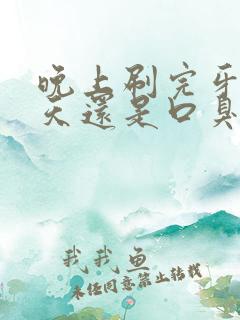 晚上刷完牙
天還是口臭
我我鱼
未经同意禁止转载